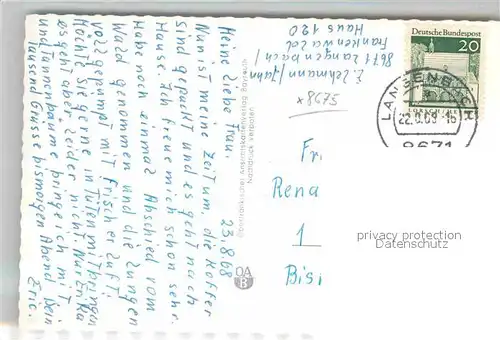 E. Lehmann / Jahn
8671 Langenbach /
Frankenwald
Haus 120
23.8.68
Meine liebe Frau.
Nun ist meine Zeit um, die Koffer
sind gepackt und es geht nach
Hause. Ich freue mich schon sehr.
Habe noch einmal Abschied vom
Wald genommen und die Lungen
vollgepumpt mit frischer Luft!
Möchte Sie gerne in Tüten mitbringen
es geht aber leider nicht. Nur Erika
und Tannenbäume bringe ich mit.
Tausend Grüsse bis morgen Abend Dein
Eric.
x 8675
Oberfränkischer Ansichtskartenverlag Bayreuth
Nachdruck verboten
OA
B
Deutsche Bundespost
20
LORSCH
LANGENBACH
8671
Fr
Rena
1
Bis
privacy protection
Datenschutz